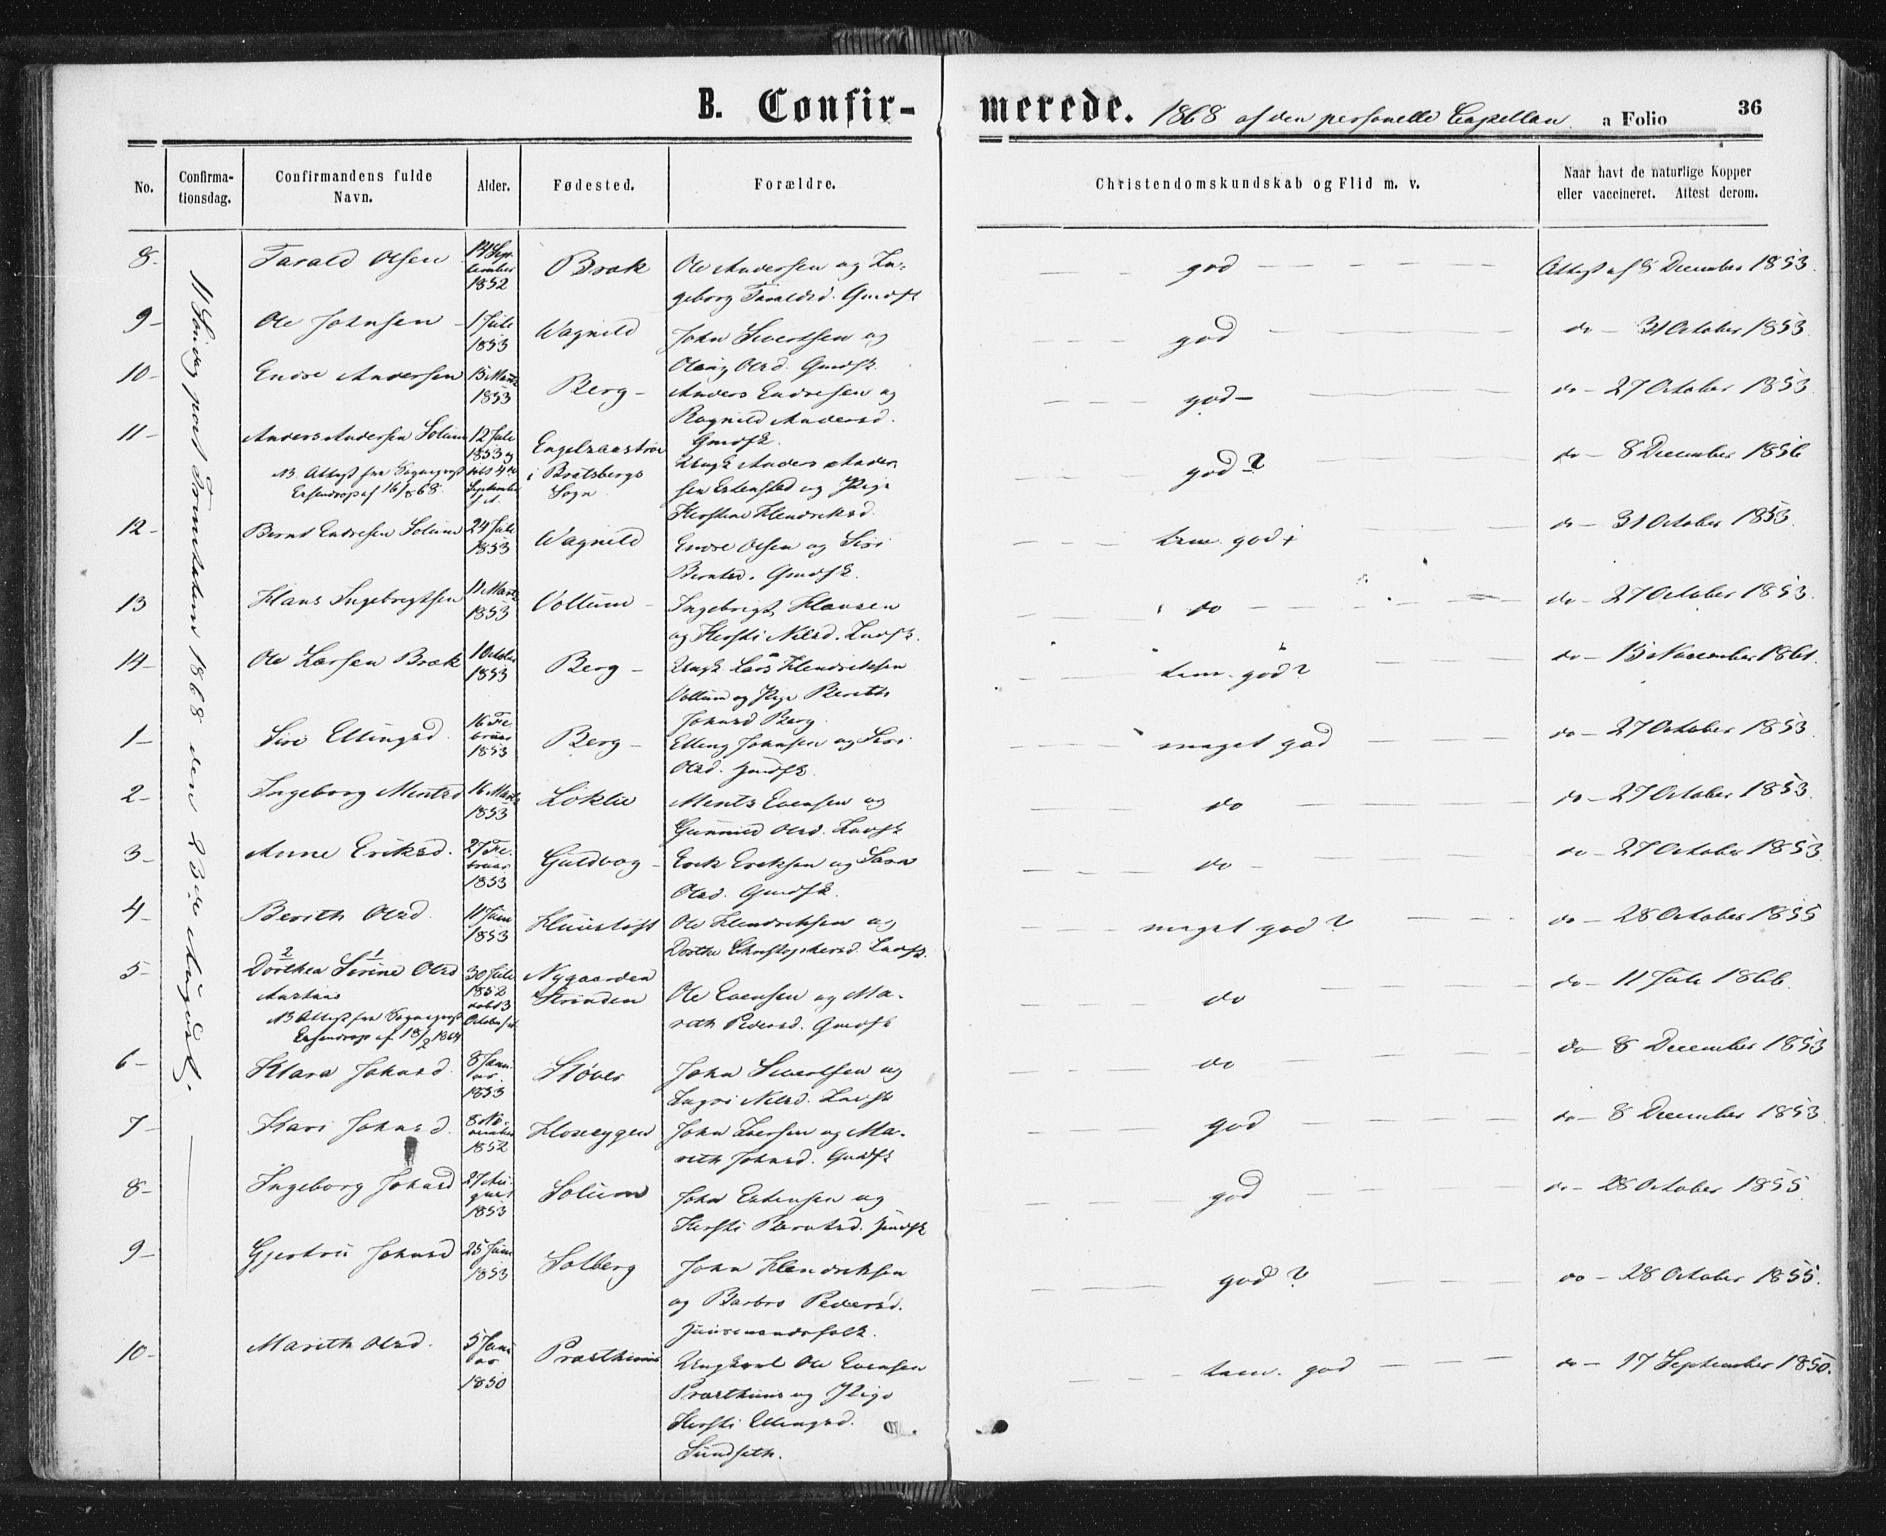 B. Confir-merede. 1868 af den personelle Capellan a Folio 36
No. Confirma-tionsdag. Confirmandens fulde Navn. Alder. Fødested. Forældre. Christendomskundskab og Flid m. v. Naar havt de naturlige Kopper eller vaccineret. Attest derom.
11 Søndag post Trinitatem 1868 den 23de August.
8- Tarald Olsen 14 Sep-
tember
1852 Brøk Ole Andersen og In-
geborg Taraldsd. Gmdfk god Attest af 8 December 1853.
9- Ole Johnsen 1 Juli
1853 Wagnild John Sivertsen og
Olaug Olsd. Gmdfk. god do - 31 October 1853.
10- Endre Andersen 13 Marts
1853 Berg Anders Endresen og
Ragnild Andersd.
Gmdfk. god do - 27 October 1853
11- Anders Andersen Solum 12 Juli
1853 og
døbt 4de
September
s. A.
NB Attest fra Sognepræst
af 16/8 68.
i Bratsbergs
Sogn
Ungk. Anders Ander-
sen Estenstad og Pige
Kirstine Hendriksd. god? do - 8 December 1856
12- Bernt Endresen Solum 24 Juli
1853 Wagnild Endre Olsen og Siri
Berntsd. Gmdfk. tem. god + do - 31 October 1853.
13 Hans Ingebrigtsen 11 Marts
1853 Vollum Ingebrigt Hansen
og Kirsti Nilsd. Indfk. do do - 27 October 1853.
14- Ole Larsen Brøk 1 October
1853 Berg Ungk. Lars Hendriksen
Vollum og Pige Berith
Johnsd Berg. tem. god? do - 15 November 1861.
1- Siri Ellingsd. 16 Fe-
bruar
1853 Berg Elling Johnsen og Siri
Olsd. Gmdfk. meget god do - 27 October 1853.
2- Ingeborg Mentsd 16 Marts
1853 Løklie Ments Evensen og
Gunnild Olsd. Indfk do do - 27 October 1853.
3- Anne Eriksd. 27 Fe-
bruar
1853 Guldvog Erik Eriksen og Sara
Olsd. Gmdfk. do do - 27 October 1853.
4- Berith Olsd. 11 Juni
1853 Ole Hendriksen og
Dorthe Christophersd. Indfk. meget god? do - 28 October 1855
5- Dorthea Sirine Olsd 30 Juli
1852
døbt 3
October s.A. Nygaarden
Strinden Ole Evensen og Ma-
rith Pedersd. Gmdfk do do - 11 Juli 1866.
NB Attest fra Sognepræst
af 18/2 1864
6- Klara Johnsd. 8 Janu-
ar.
1853 Støver John Sivertsen og
Ingri Nilsd. Indfk do do - 8 December 1853
7- Kari Johnsd. 8 No-
vember
1852 John Iversen og Ma-
rith Johnsd. Gmdfk god do - 8 December 1853.
8- Ingeborg Johnsd 27 Au-
gust
1853 Solum John Estensen og
Kirsti Berntsd. Gmdfk god do - 28 October 1855.
9- Gjertru Johnsd 25 Juni
1853 Solberg John Hendriksen
og Barbro Pedersd.
Huusmandsfolk. god? do - 28 October 1855.
10- Marith Olsd. 5 Janu-
ar
1850 Præsthuus Ungkarl Ole Evensen
Præsthuus og Pige
Kirsti Ellingsd.
Sundseth. tem. god do - 17 September 1850.